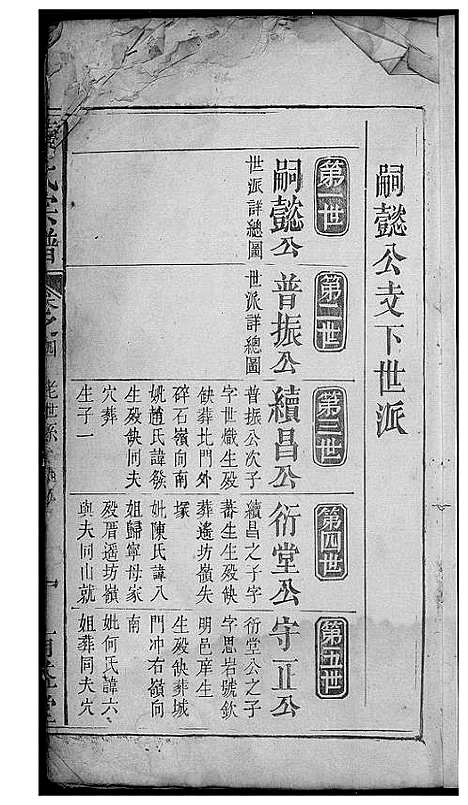 嗣懿公支下世派
第一世
嗣懿公
世派詳總圖
第二世
普振公
世派詳總圖
第三世
續昌公
普振公次子
字世熾生殁
缺葬北門外
碎石嶺向南
妣趙氏諱發
生殁缺同夫
穴葬
生子一
第四世
衍堂公
續昌之子字
蕃生生殁缺
葬遙坊嶺失
塚
妣陳氏諱八
姐歸寧母家
殁厝遥坊嶺
與夫同山就
第五世
守正公
衍堂公之子
字思岩號欽
明邑庠生
生殁缺葬城
門冲右嶺向
南
妣何氏諱六
姐葬同夫穴
氏宗譜
卷之四
老世系